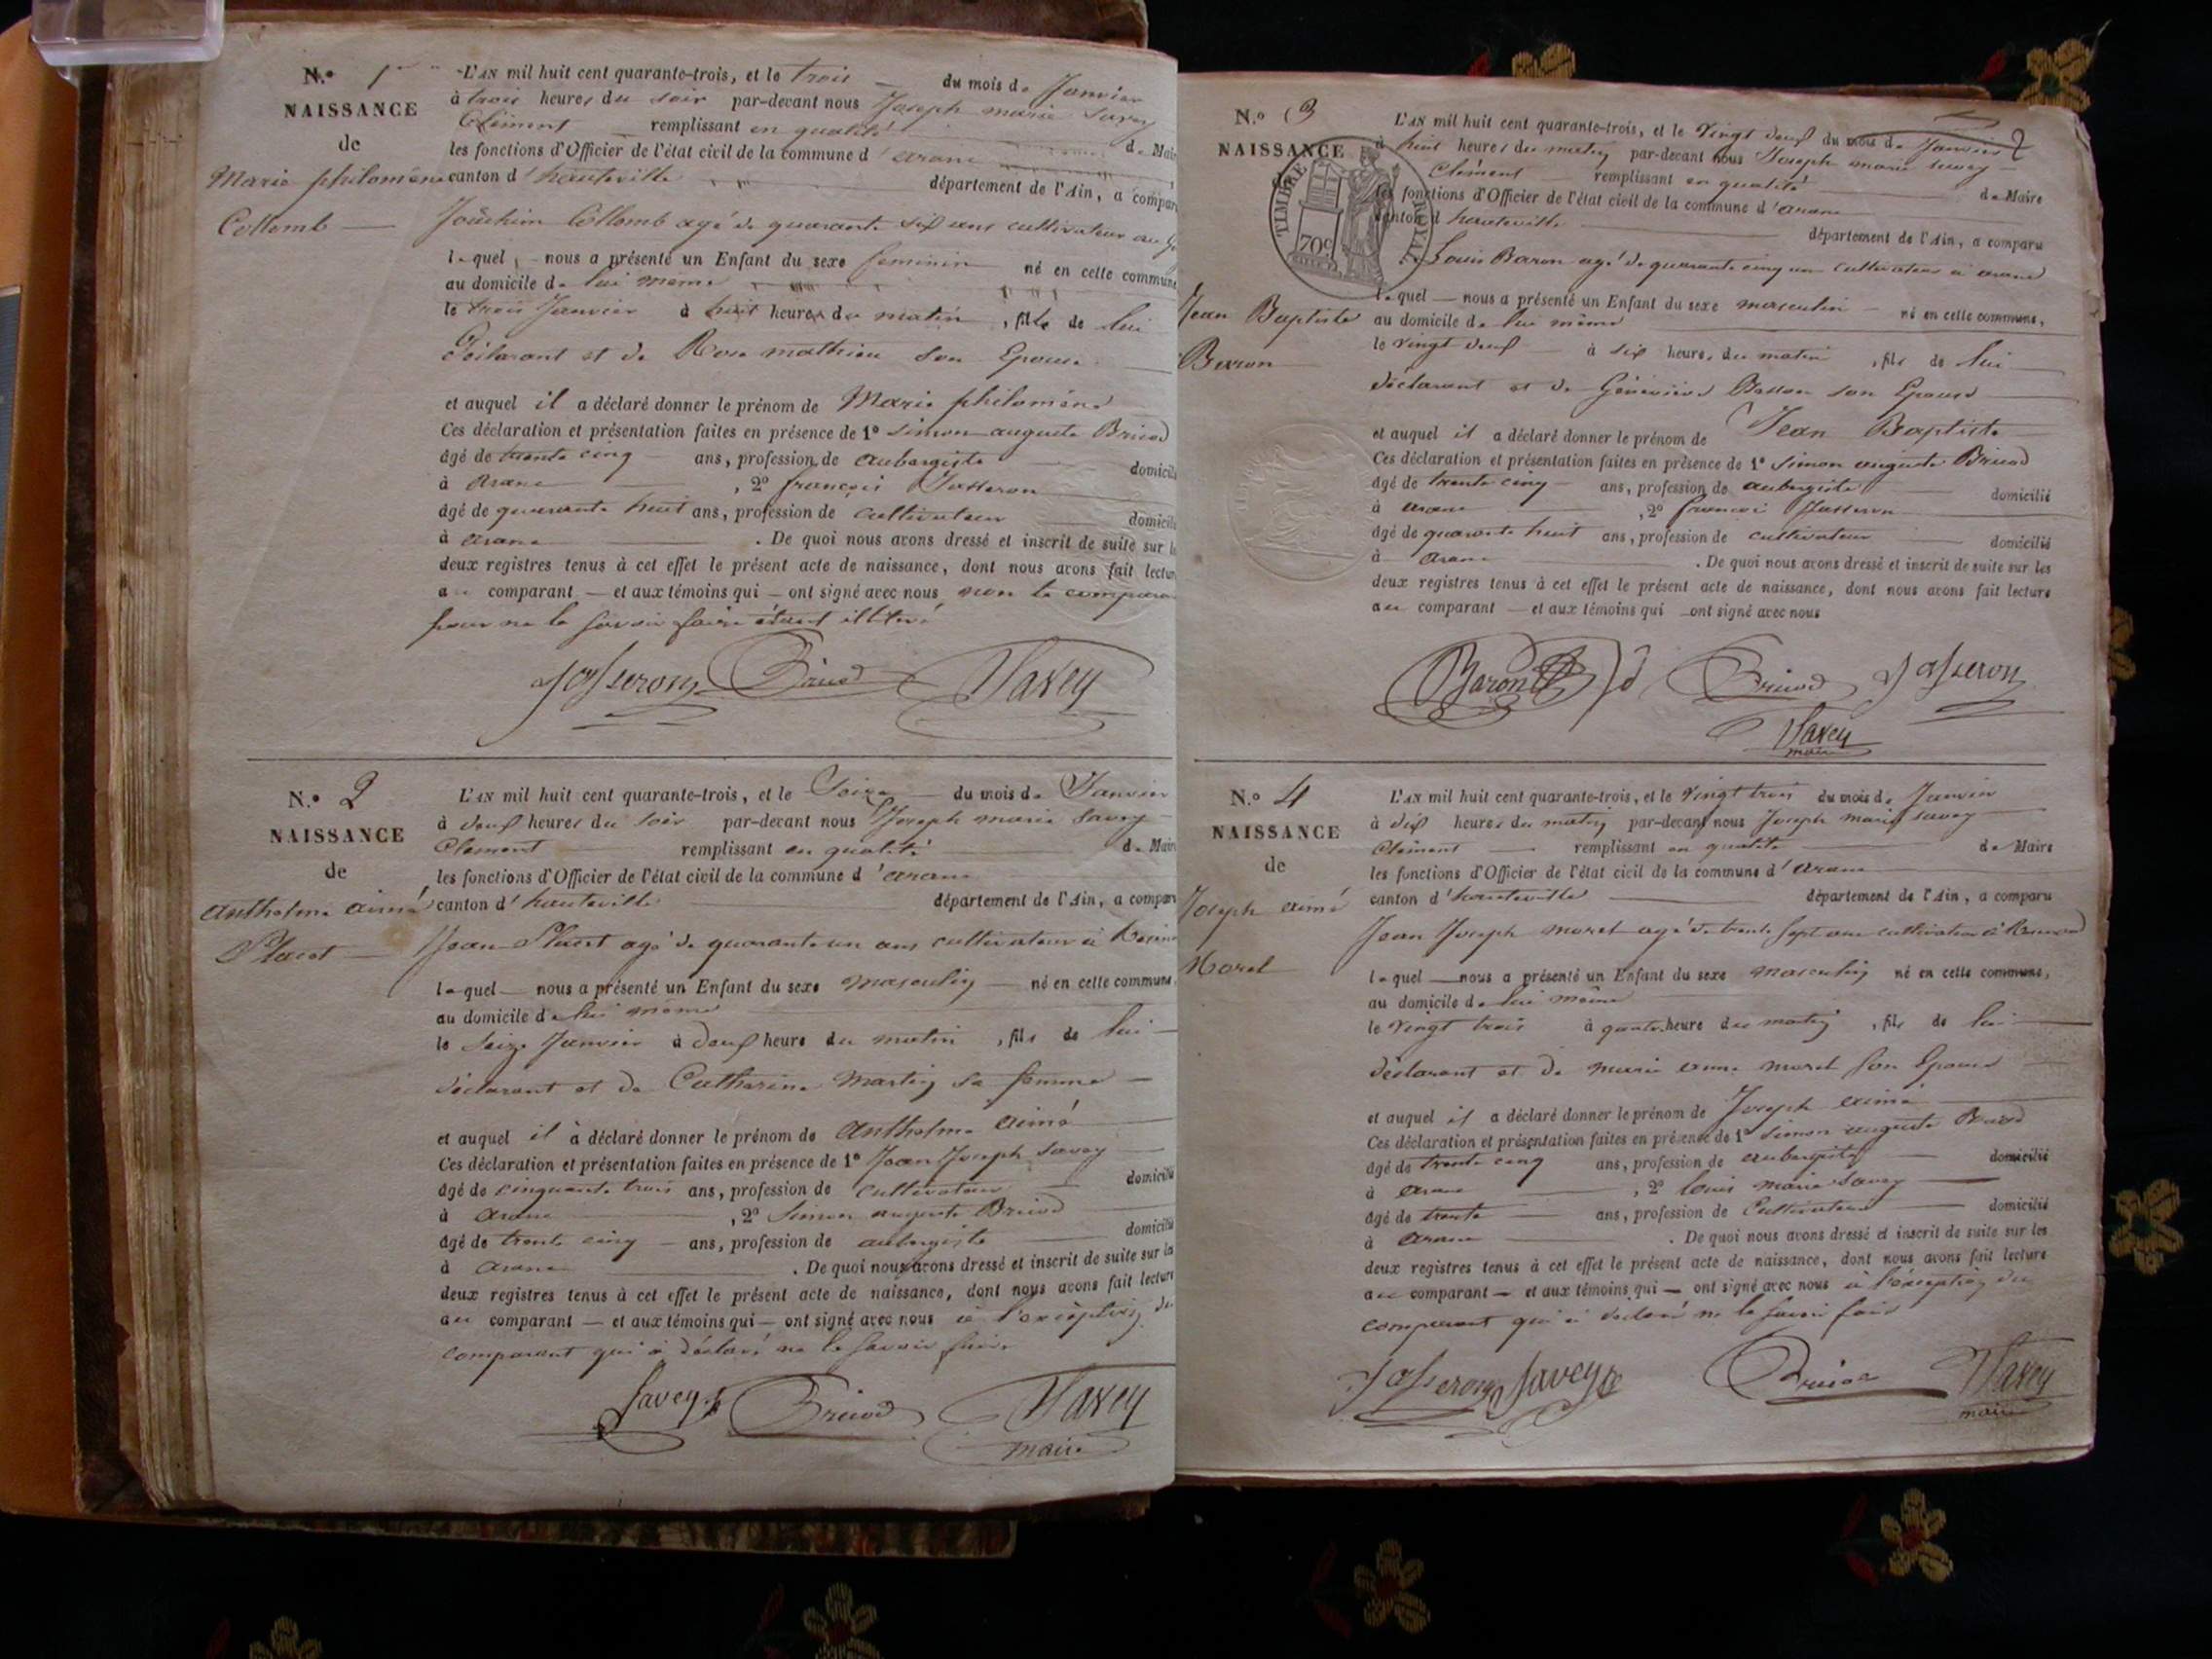 N.º 1er
NAISSANCE
de
Marie philomène
Collomb
L'AN mil huit cent quarante-trois, et le trois du mois de Janvier
à trois heures du soir par-devant nous Joseph marie Savey
Clément remplissant en qualité de Mair
les fonctions d'Officier de l'état civil de la commune d'arane
canton d'hauteville département de l'Ain, a compar
Joachim Collomb agé de quarante six ans cultivateur au
lequel nous a présenté un Enfant du sexe féminin né en cette commune
au domicile de lui même
le trois Janvier à huit heures du matin, fille de lui
Déclarant et de Rose mathieu son Epouse
et auquel il a déclaré donner le prénom de Marie philomène
Ces déclaration et présentation faites en présence de 1º Simon auguste Briod
âgé de trente cinq ans, profession de aubergiste domicili
à arane, 2º françois Josseron
âgé de quarante huit ans, profession de cultivateur domicili
à arane. De quoi nous avons dressé et inscrit de suite sur l
deux registres tenus à cet effet le présent acte de naissance, dont nous avons fait lectur
au comparant et aux témoins qui ont signé avec nous non le compara
pour ne le savoir faire étant illitéré
Josseron Briod Savey
N.º 2
NAISSANCE
de
Anthelme aimé
Placet
L'AN mil huit cent quarante-trois, et le Seize du mois de Janvier
à deux heures du soir par-devant nous Joseph marie Savey
Clément remplissant en qualité de Mair
les fonctions d'Officier de l'état civil de la commune d'arane
canton d'hauteville département de l'Ain, a compar
Jean Placet agé de quarante un ans cultivateur à
lequel nous a présenté un Enfant du sexe masculin né en cette commune
au domicile de lui même
le Seize Janvier à deux heure du matin, fils de lui
déclarant et de Catherine Martin sa femme
et auquel il a déclaré donner le prénom de Anthelme aimé
Ces déclaration et présentation faites en présence de 1º Jean Joseph Savey
âgé de cinquante trois ans, profession de cultivateur domicilié
à arane, 2º Simon auguste Briod
âgé de trente cinq ans, profession de aubergiste domicilié
à arane. De quoi nous avons dressé et inscrit de suite sur les
deux registres tenus à cet effet le présent acte de naissance, dont nous avons fait lecture
au comparant et aux témoins qui ont signé avec nous à l'exception du
comparant qui a déclaré ne le savoir faire
Savey Briod Savey
maire
2
N.º 3
NAISSANCE
TIMBRE ROYAL
70c
Jean Baptiste
Baron
L'AN mil huit cent quarante-trois, et le vingt deux du mois de Janvier
à huit heures du matin par-devant nous Joseph marie Savey
Clément remplissant en qualité de Maire
les fonctions d'Officier de l'état civil de la commune d'arane
canton d'hauteville département de l'Ain, a comparu
Louis Baron agé de quarante cinq ans cultivateur à arane
lequel nous a présenté un Enfant du sexe masculin né en cette commune,
au domicile de lui même
le vingt deux à six heures du matin, fils de lui
déclarant et de Géneviève Besson son Epouse
et auquel il a déclaré donner le prénom de Jean Baptiste
Ces déclaration et présentation faites en présence de 1º Simon auguste Briod
âgé de trente cinq ans, profession de aubergiste domicilié
à arane, 2º françois Josseron
âgé de quarante huit ans, profession de cultivateur domicilié
à arane. De quoi nous avons dressé et inscrit de suite sur les
deux registres tenus à cet effet le présent acte de naissance, dont nous avons fait lecture
au comparant et aux témoins qui ont signé avec nous
Baron Briod Josseron
Savey
maire
N.º 4
NAISSANCE
de
Joseph aimé
Morel
L'AN mil huit cent quarante-trois, et le vingt trois du mois de Janvier
à dix heures du matin par-devant nous Joseph marie Savey
Clément remplissant en qualité de Maire
les fonctions d'Officier de l'état civil de la commune d'arane
canton d'hauteville département de l'Ain, a comparu
Jean Joseph morel agé de trente sept ans cultivateur à
lequel nous a présenté un Enfant du sexe masculin né en cette commune,
au domicile de lui même
le vingt trois à quatre heure du matin, fils de lui
déclarant et de marie anne morel son Epouse
et auquel il a déclaré donner le prénom de Joseph aimé
Ces déclaration et présentation faites en présence de 1º Simon auguste Briod
âgé de trente cinq ans, profession de aubergiste domicilié
à arane, 2º louis marie Savey
âgé de trente ans, profession de Cultivateur domicilié
à arane. De quoi nous avons dressé et inscrit de suite sur les
deux registres tenus à cet effet le présent acte de naissance, dont nous avons fait lecture
au comparant et aux témoins qui ont signé avec nous à l'exception du
comparant qui a déclaré ne le savoir faire
Josseron Savey Briod Savey
maire